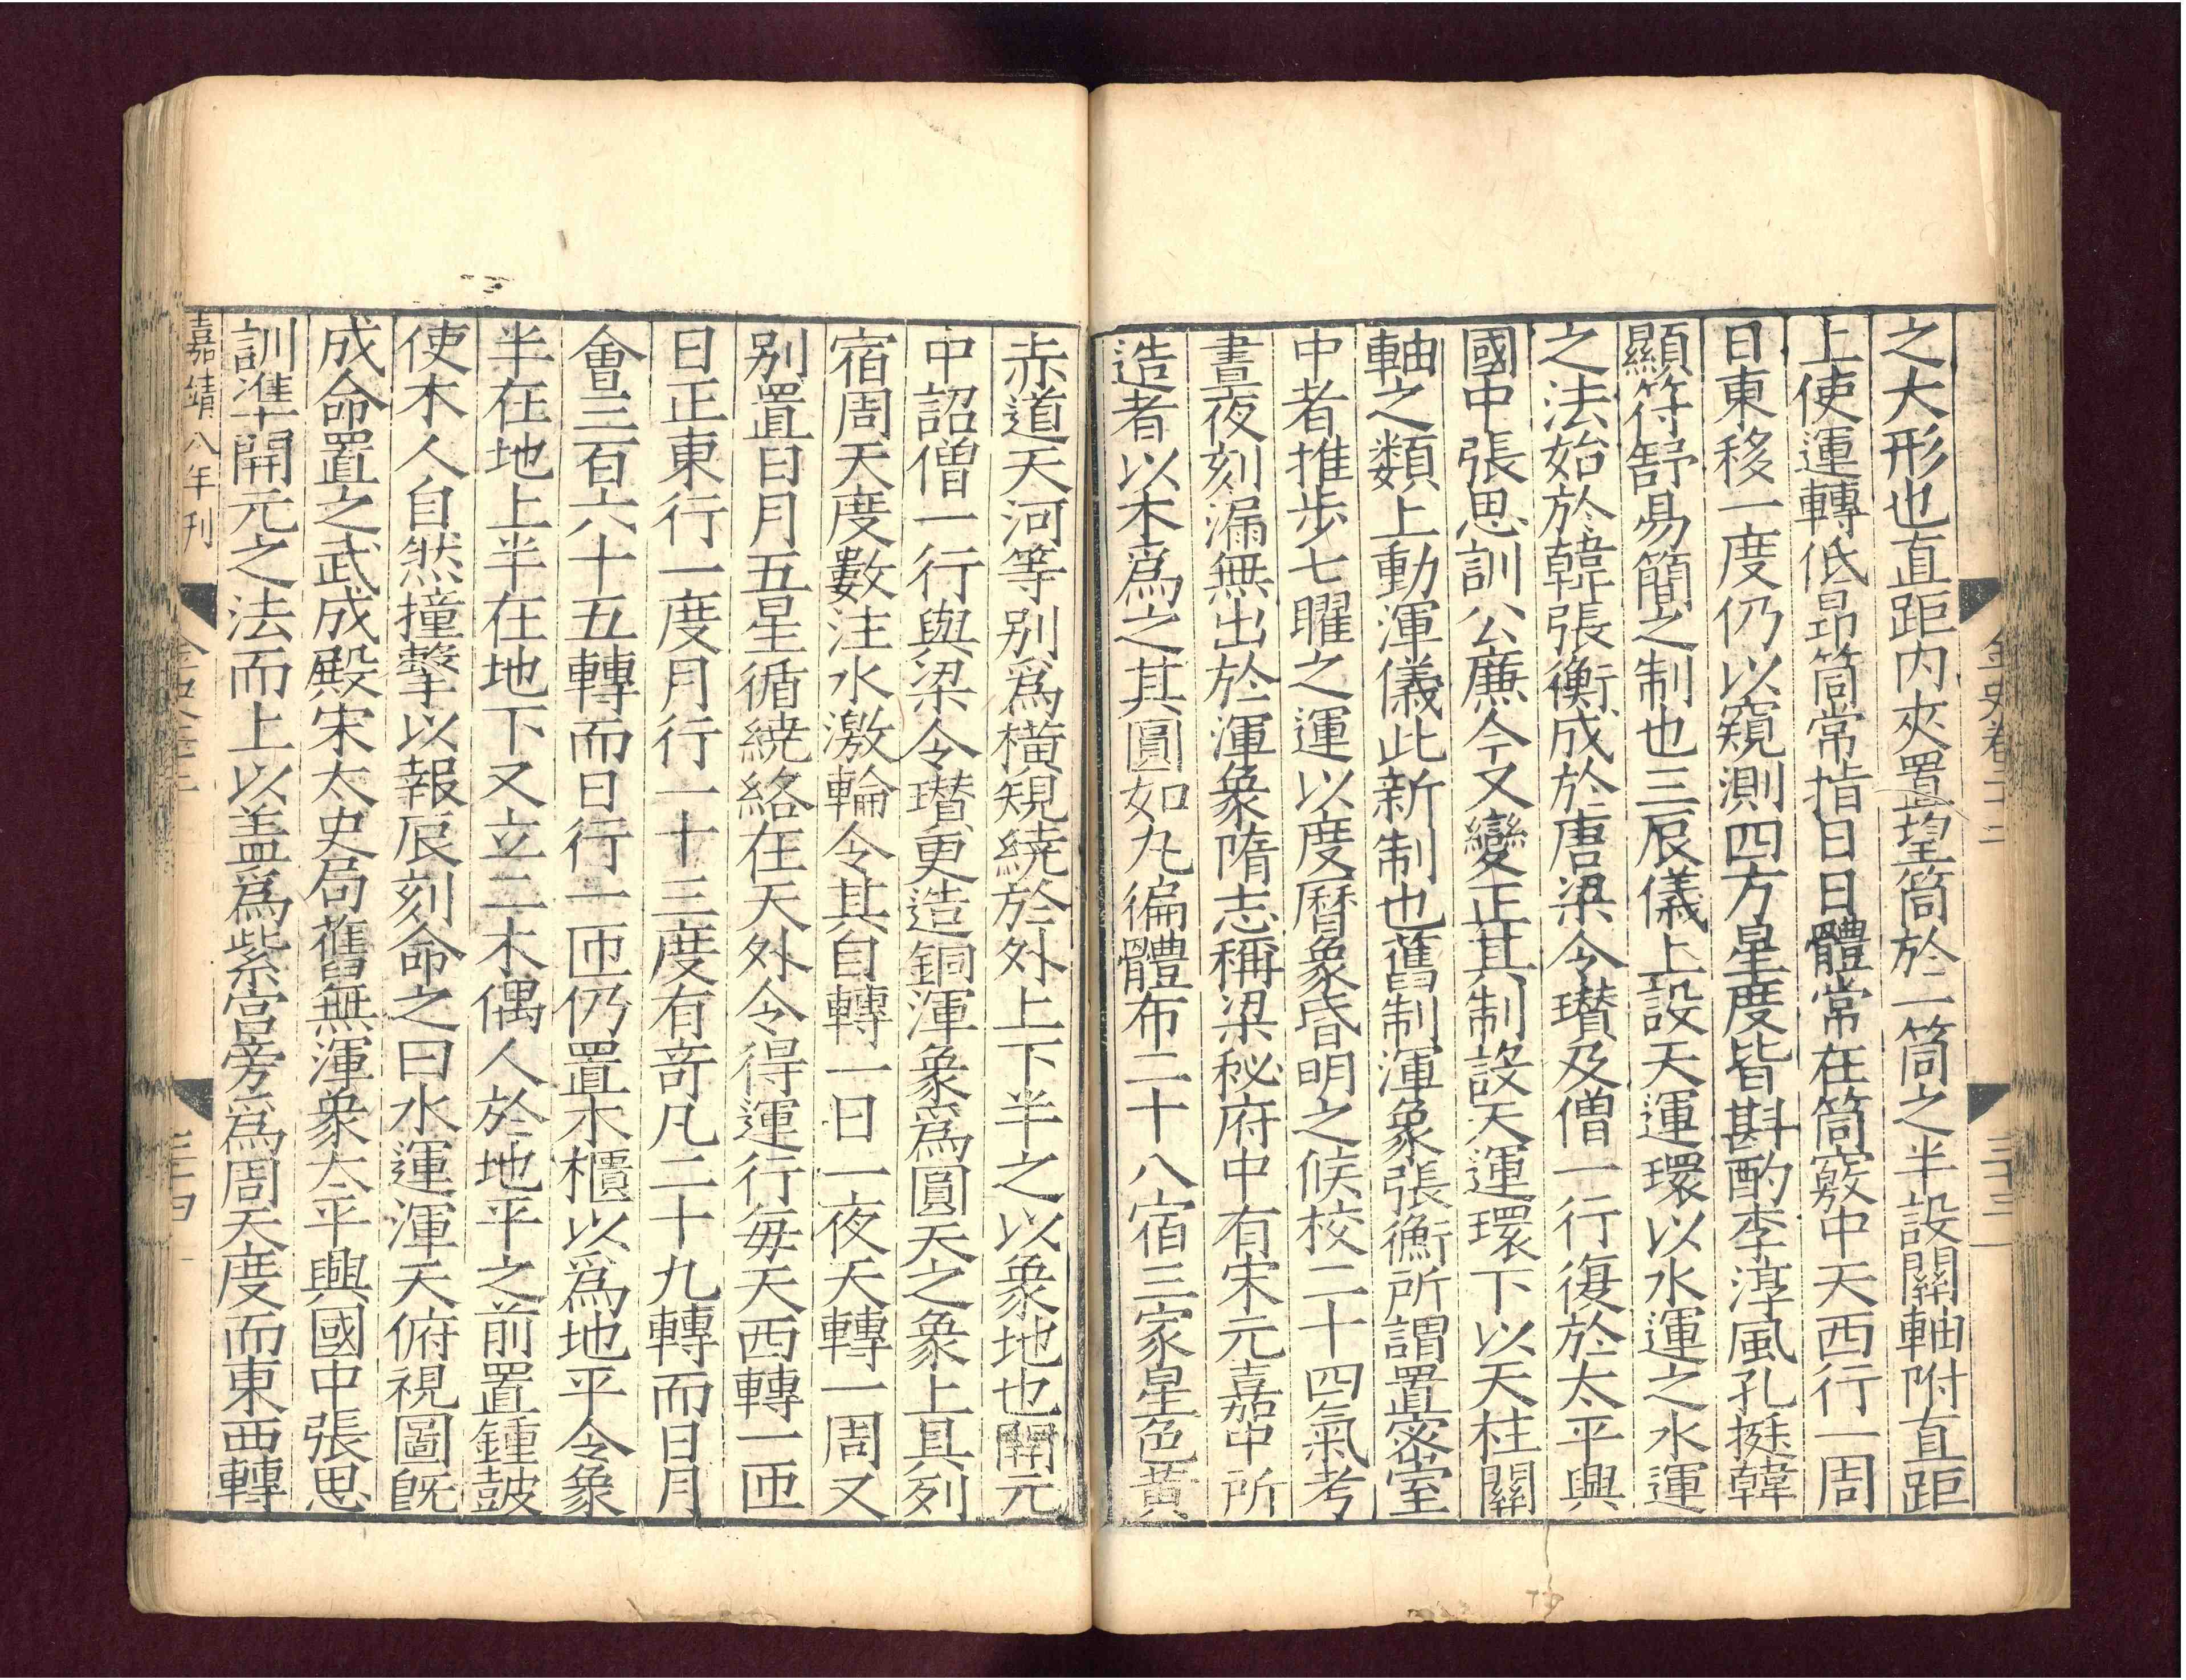 金史卷二十二
三十三
之大形也直距内夾置望筒於一筒之半設關軸附直距
上使運轉低昂筒常指日日體常在筒竅中天西行一周
日東移一度仍以窺測四方星度皆斟酌李淳風孔挺韓
顯符舒易簡之制也三辰儀上設天運環以水運之水運
之法始於韓張衡成於唐梁令瓚及僧一行復於太平興
國中張思訓公廉今又變正其制設天運環下以天柱關
軸之類上動渾儀此新制也舊制渾象張衡所謂置宻室
中者推步七曜之運以度曆象昏明之候校二十四氣考
晝夜刻漏無出於渾象隋志稱梁秘府中有宋元嘉中所
造者以木爲之其圓如丸徧體布二十八宿三家星色黃
赤道天河等别爲橫規繞於外上下半之以象地也開元
中詔僧一行與梁令瓚更造銅渾象爲圓天之象上具列
宿周天度數注水激輪令其自轉一日一夜天轉一周又
别置日月五星循繞絡在天外令得運行每天西轉一匝
日正東行一度月行一十三度有竒凡二十九轉而日月
會三百六十五轉而日行一匝仍置木櫃以爲地平令象
半在地上半在地下又立二木偶人於地平之前置鍾鼓
使木人自然撞擊以報辰刻命之曰水運渾天俯視圖旣
成命置之武成殿宋太史局舊無渾象太平興國中張思
訓準開元之法而上以盖爲紫宫旁爲周天度而東西轉
嘉靖八年刊